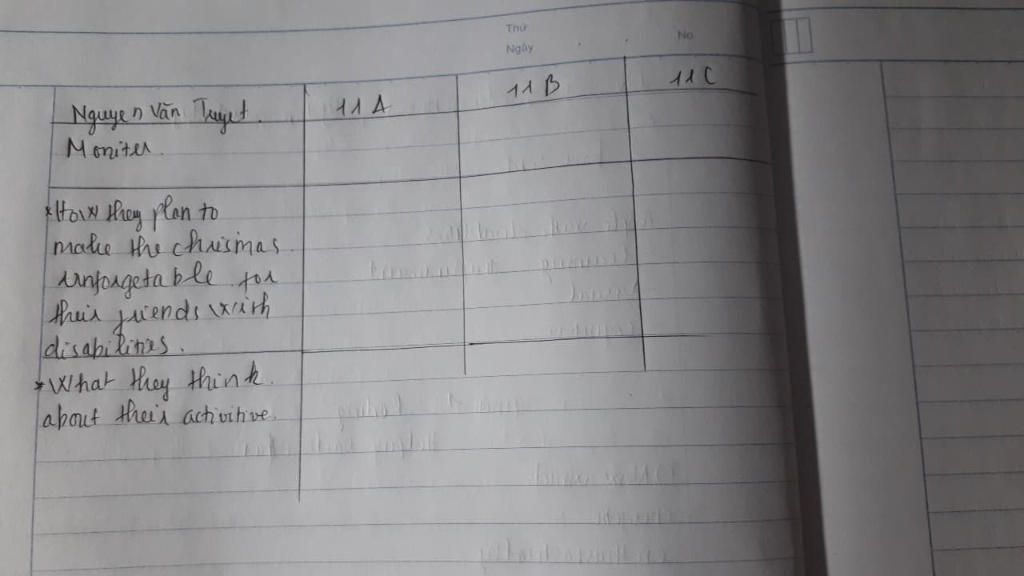 Thứ
Ngày
No
Nguyen Văn Tuyet. 11A 11B 11C
Moniter.
*How they plan to
make the chrismas
unforgetable for
their friends with
disabilities.
*What they think
about their activitive.